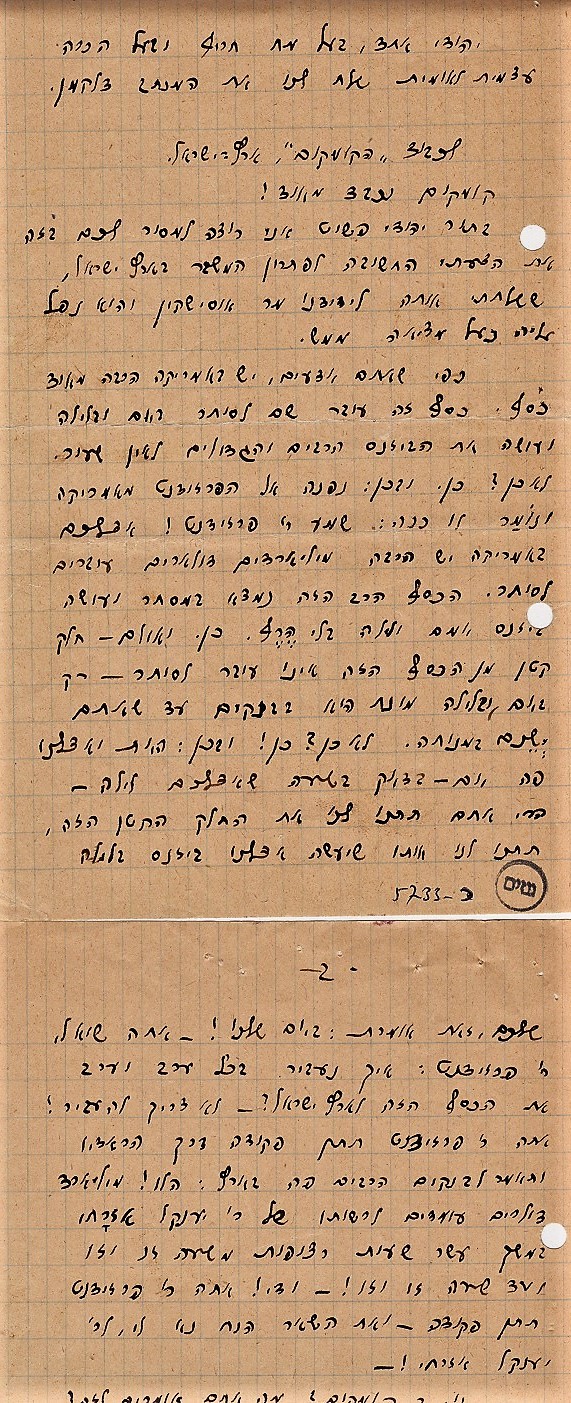 יהודי אחד, בעל מח חריף ובעל הכרה
עצמית לאומית שלח לנו את המכתב דלקמן.
לכבוד "הקומקום", ארץ-ישראל.
קומקום נכבד מאוד!
בתור יהודי פשוט אני רוצה למסור לכם בזה
את הצעתי החשובה לפתרון המשבר בארץ ישראל,
ששלחתי אותה לידידנו מר אוסישקין והוא נפל
עליה כעל מציאה ממש.
כפי שאתם יודעים, יש באמריקה הרבה מאוד
כסף. כסף זה עובר שם לסוחר ביום ובלילה
ועושה את הביזנס הרבים והגדולים לאין שעור.
לא כן? כן. ובכן: נפנה אל הפרזידנט מאמריקה
ונומר לו ככה: שמע ר' פרזידנט! אצלכם
באמריקה יש הרבה מיליארדים דולארים עוברים
לסוחר. הכסף הרב הזה נמצא במסחר ועושה
ביזנס יומם ולילה בלי הֶרֶף. כן. ואולם – חלק
קטן מן הכסף הזה אינו עובר לסוחר – רק
ביום, ובלילה מונח הוא בבנקים עד שאתם
יְשֵנים במנוחה. לא כן? כן! ובכן: היות ואצלנו
פה יום – בדיוק בשעה שאצלכם לילה –
הרי אתם תתנו לנו את החלק הקטן הזה,
תתנו לנו אותו שיעשה אצלנו ביזנס בלילה
כ-5733
- ב -
שלכם, זאת אומרת: ביום שלנו! – אתה שואל,
ר' פרזידנט: איך נעביר בכל ערב וערב
את הכסף הזה לארץ ישראל? – לא צריך להעביר!
אתה ר' פרזידנט תתן פקודה דרך הראדיו
ותאמר לבנקים הרבים פה בארץ: הלו! מיליארד
דולרים עומדים לרשותו של ר' יענקל אזרָחי
במשך עשר שעות רצופות משעה זו וזו
ועד שעה זו וזו! – ודי! אתה ר' פרזידנט
תתן פקודה – ואת השאר הנח נא לי, לר'
יענקל אזרחי! –